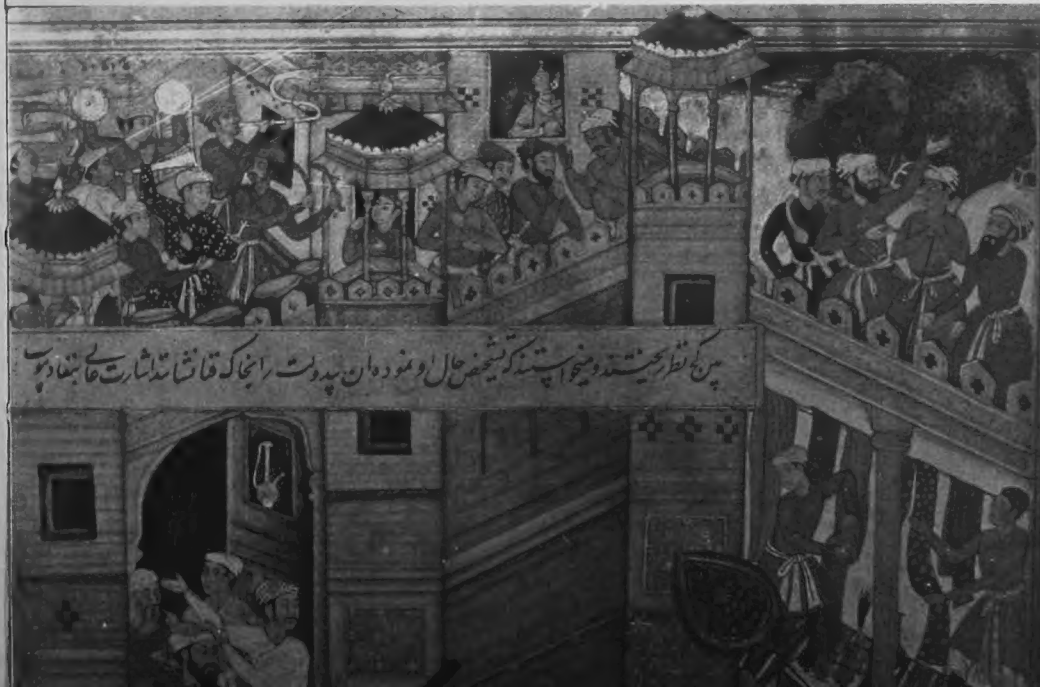 پس کج نظر ریختند و میخواستند که تشخص حال او نموده ان بیدولت را بخاک فنا نشانند اشارت عالی بنفاد پیوست